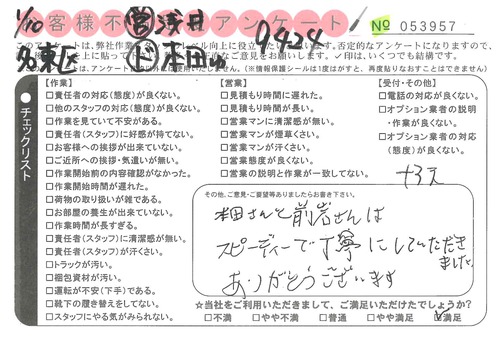 お客様不満アンケート!
№ 053957
1/10
名東区
営 浅井
ド 本田
9424
このアンケートは、弊社作業
否定的なアンケートになりますので、
ご意見をお願いします。✓印は、いくつでも結構です。
(※情報保護シールは1度はがすと、再度貼りなおすことはできません)
チェックリスト
【作業】
□責任者の対応(態度)が良くない。
□他のスタッフの対応(態度)が良くない。
□作業を見ていて不安がある。
□責任者(スタッフ)に好感が持てない。
□お客様への挨拶が出来ていない。
□ご近所への挨拶・気遣いが無い。
□作業開始前の内容確認がなかった。
□作業開始時間が遅れた。
□荷物の取り扱いが雑である。
□お部屋の養生が出来ていない。
□作業時間が長すぎる。
□責任者(スタッフ)に清潔感が無い。
□責任者(スタッフ)が汗くさい。
□トラックが汚い。
□梱包資材が汚い。
□運転が不安(下手)である。
□靴下の履き替えをしてない。
□スタッフにやる気がみられない。
【営業】
□見積もり時間に遅れた。
□見積もり時間が長い。
□営業マンに清潔感が無い。
□営業マンが煙草くさい。
□営業マンが汗くさい。
□営業態度が良くない。
□営業の説明と作業が一致してない。
【受付・その他】
□電話の対応が良くない。
□オプション業者の説明
・作業が良くない。
□オプション業者の対応
(態度)が良くない。
その他、ご意見・ご要望等ありましたらお書き下さい。
本田さんと前岩さんは
スピーディーで丁寧にしていただき
ました。
ありがとうございます
☆当社をご利用いただきまして、ご満足いただけたでしょうか?
□不満 □やや不満 □普通 □やや満足 ☑満足